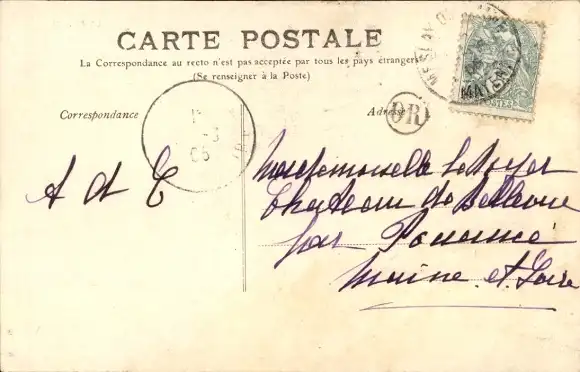 CARTE POSTALE
La Correspondance au recto n'est pas acceptée par tous les pays étrangers
(Se renseigner à la Poste)
Correspondance
Adresse
OR
MAYENNE
POSTES
A d T
Mademoiselle Le Royer
Chateau de Bellevue
par Pouancé
Maine et Loire